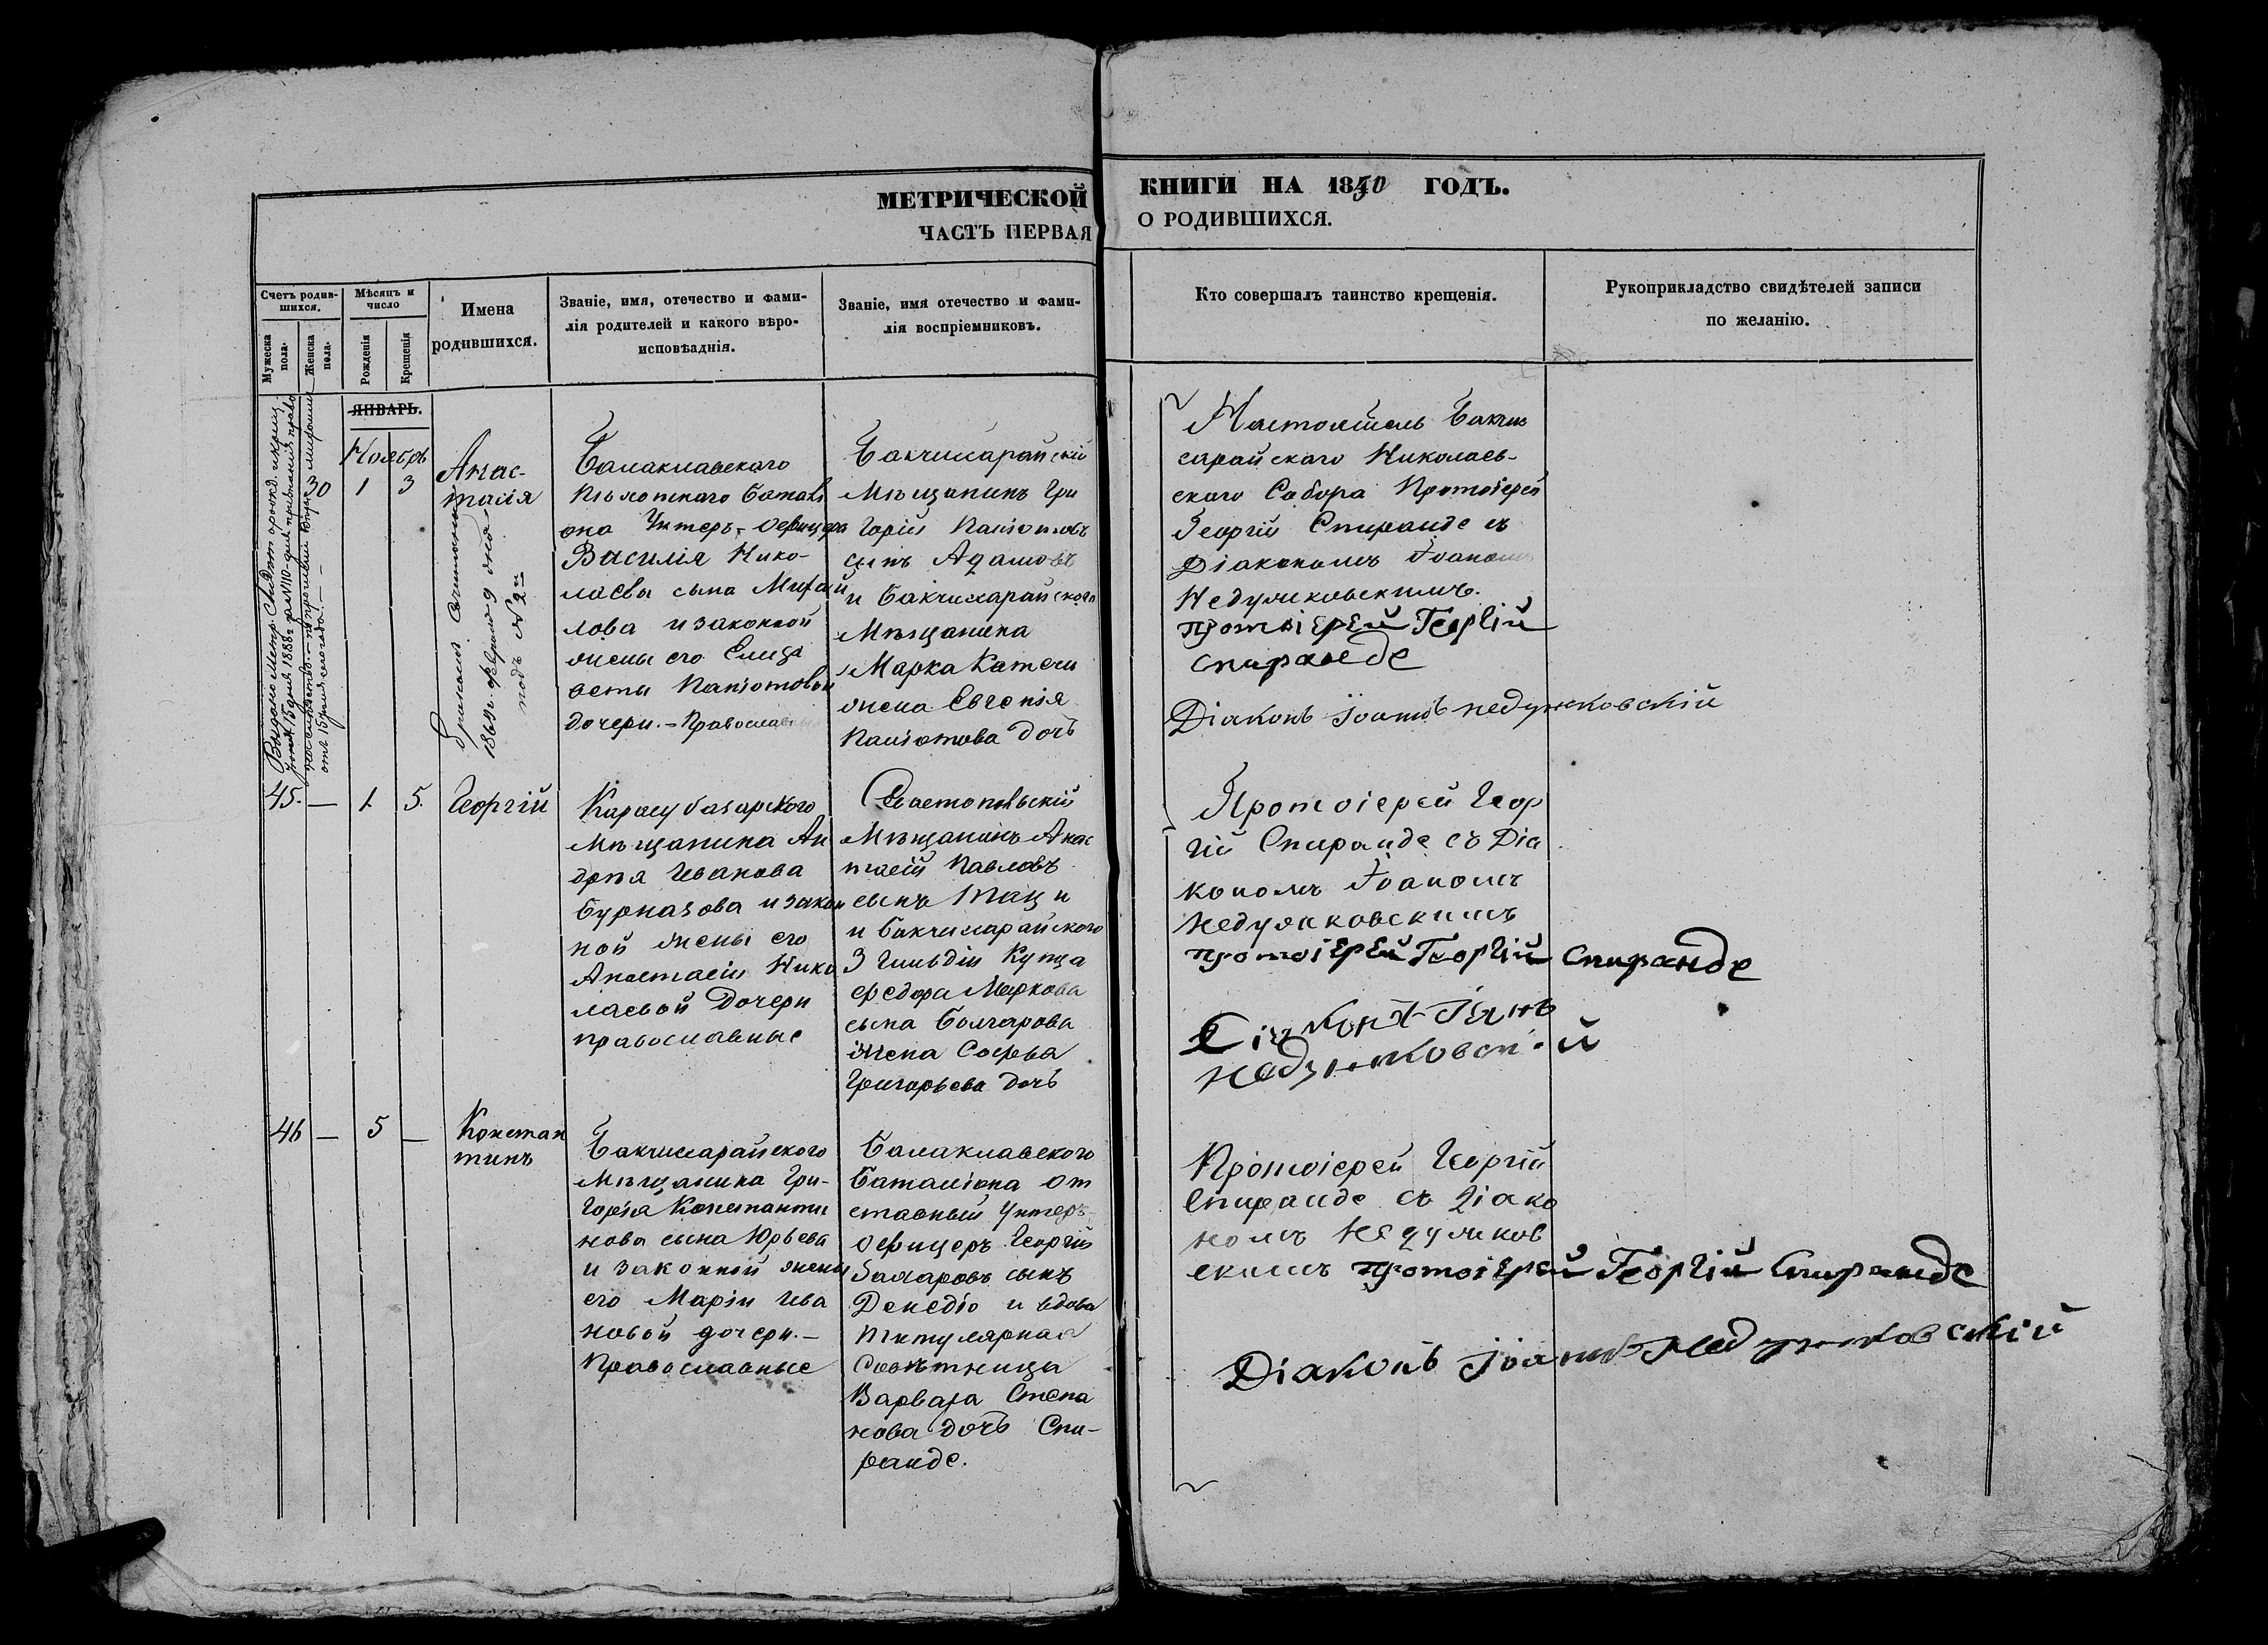 МЕТРИЧЕСКОЙ
ЧАСТЬ ПЕРВАЯ
КНИГИ НА 1850 ГОДЪ.
О РОДИВШИХСЯ.
Счетъ родив-
шихся.
Мужеска
пола.
Женска
пола.
Мѣсяцъ и
число
Рожденія
Крещенія
Имена
родившихся.
Званіе, имя, отечество и фами-
лія родителей и какого вѣро-
исповѣаднія.
Званіе, имя отечество и фами-
лія воспріемниковъ.
Кто совершалъ таинство крещенія.
Рукоприкладство свидѣтелей записи
по желанію.
ЯНВАРЬ.
Ноябрь
30 1 3
Анас-
тасія
1869г февраля 9 дня
подъ № 2м
Балаклавскаго
Пѣхотнаго Батали
она Унтеръ-Офицера
Василія Нико-
лаева сына Михай
лова и законной
жены его Елиза
веты Панiотовой
дочери. - Православные
Бакчисарайскій
Мѣщанинъ Гри
горій Панiотовъ
сынъ Адамовъ
и Бакчисарайскаго
Мѣщанина
Марка Качени
жена Евгенія
Панiотова дочь
Настоятель Бакчи
сарайскаго Николаев-
скаго Собора Протоіерей
Георгій Спиранде съ
Діакономъ Іоаномъ
Недзужковскимъ.
протоіерей Георгій
Спиранде
Діаконъ Іоаннъ Недзужковскій
45. — 1. 5. Георгій
Карасубазарскаго
Мѣщанина Ан
дрѣя Иванова
Бурназова и закон
ной жены его
Анастасіи Нико
лаевой Дочери
православные
Севастопольскій
Мѣщанинъ Анас
тасій Павловъ
сынъ Таци
и Бакчисарайского
3 Гильдіи Купца
Федора Маркова
сына Болгарова
жена Софья
Григорьева дочь
Протоіерей Геор
гій Спиранде съ Діа
кономъ Іоаномъ
Недзужковскимъ
протоіерей Георгій Спиранде
Діаконъ Іоаннъ
Недзужковскій
46 — 5 —
Констан
тинъ
Бакчисарайского
Мѣщанина Гри-
горія Константи
нова сына Юрьева
и законной жены
его Маріи Ива
новой дочери.—
Православные
Балаклавского
Баталіона От
ставный Унтеръ-
офицеръ Георгій
Захаровъ сынъ
Денедіо и вдова
Титулярная
Совѣтница
Варвара Степа
нова дочь Спи-
ранде.
Протоіерей Георгій
Спиранде съ Діако
номъ Недзужков
скимъ протоіерей Георгій Спиранде
Діаконъ Іоаннъ Недзужковскій